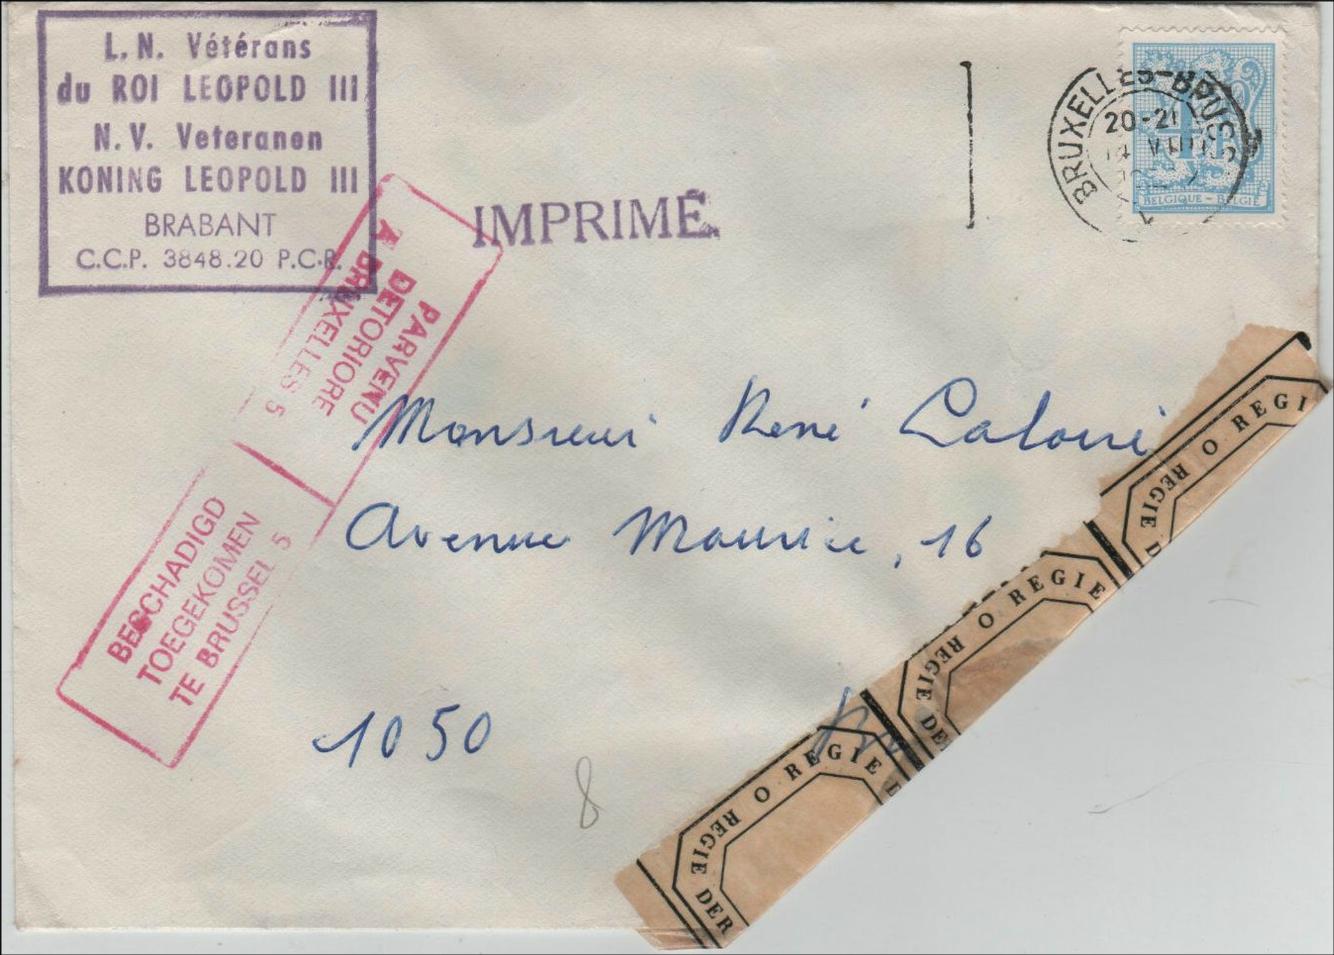 L.N. Vétérans
du ROI LEOPOLD III
N.V. Veteranen
KONING LEOPOLD III
BRABANT
C.C.P. 3848.20 P.C.R.
IMPRIMÉ
BRUXELLES-BRUSS
20-21
BELGIQUE-BELGIË
PARVENU
DETORIORE
A BRUXELLES 5
BESCHADIGD
TOEGEKOMEN
TE BRUSSEL 5
Monsieur René
Avenue Maurice, 16
1050
8
REGI
O REGIE
D
O REGIE
REGIE DE
O REGIE D
REGIE DER